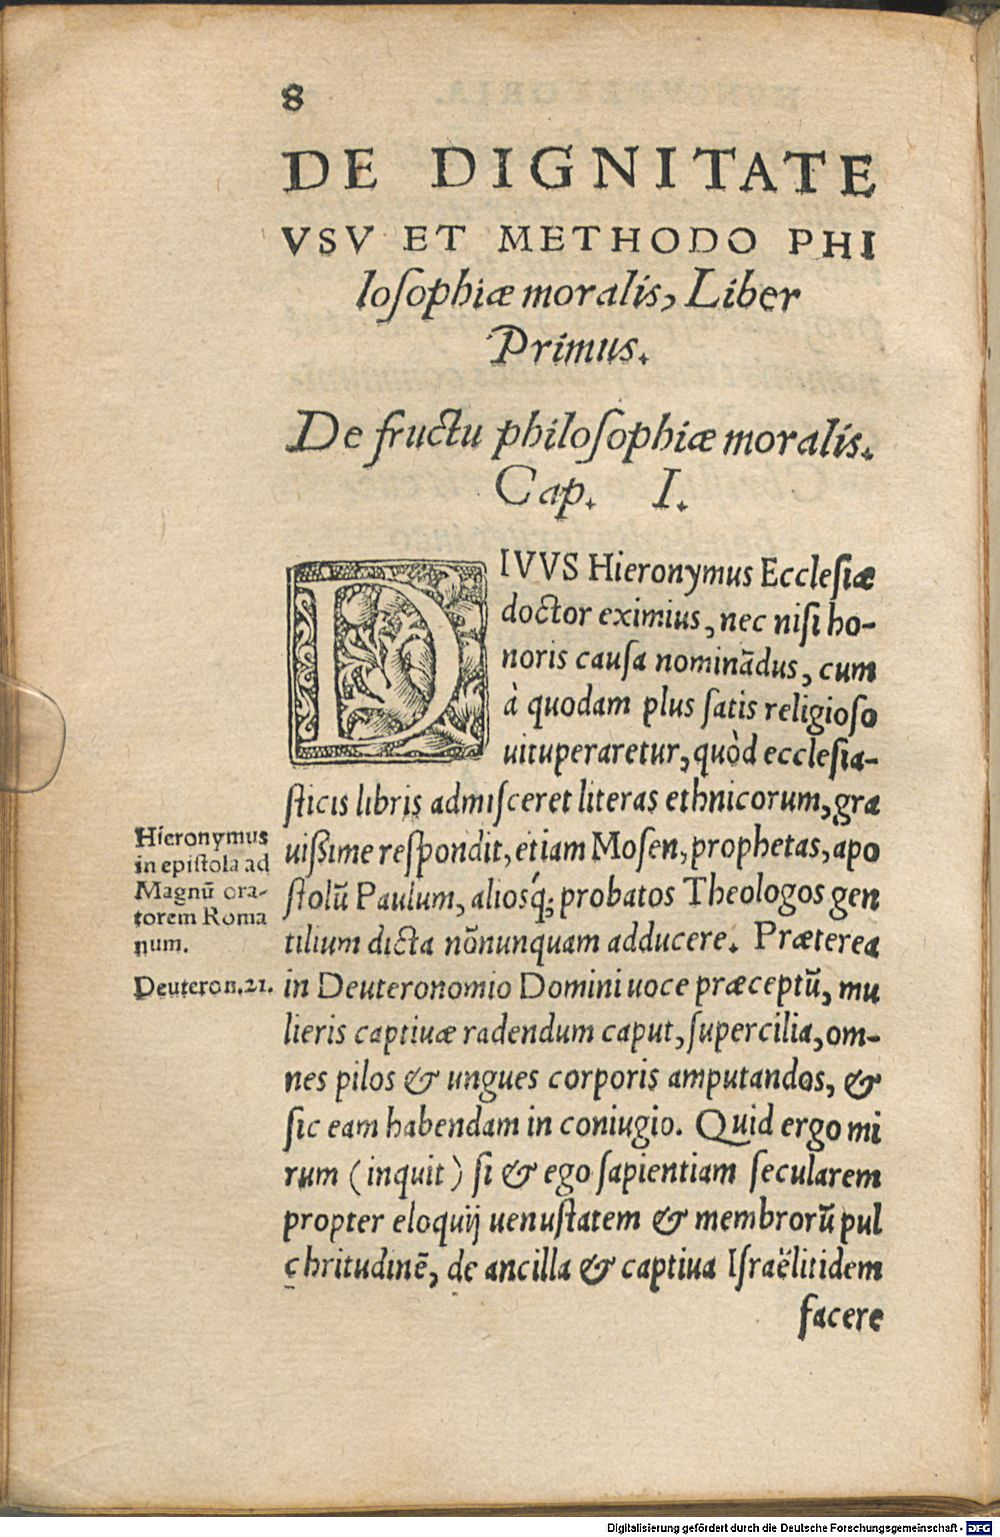 8
DE DIGNITATE
VSV ET METHODO PHI
losophiæ moralis, Liber
Primus.
De fructu philosophiæ moralis.
Cap. I.
DIVVS Hieronymus Ecclesiæ
doctor eximius, nec nisi ho-
noris causa nominãdus, cum
à quodam plus satis religioso
uituperaretur, quòd ecclesia-
sticis libris admisceret literas ethnicorum, gra
uissime respondit, etiam Mosen, prophetas, apo
stolũ Paulum, aliosq́; probatos Theologos gen
tilium dicta nõnunquam adducere. Præterea
in Deuteronomio Domini uoce præceptũ, mu
lieris captiuæ radendum caput, supercilia, om-
nes pilos & ungues corporis amputandos, &
sic eam habendam in coniugio. Quid ergo mi
rum (inquit) si & ego sapientiam secularem
propter eloquij uenustatem & membrorũ pul
chritudinẽ, de ancilla & captiua Israëlitidem
facere
Hieronymus
in epistola ad
Magnũ ora-
torem Roma
num.
Deuteron.21.
Digitalisierung gefördert durch die Deutsche Forschungsgemeinschaft - DFG